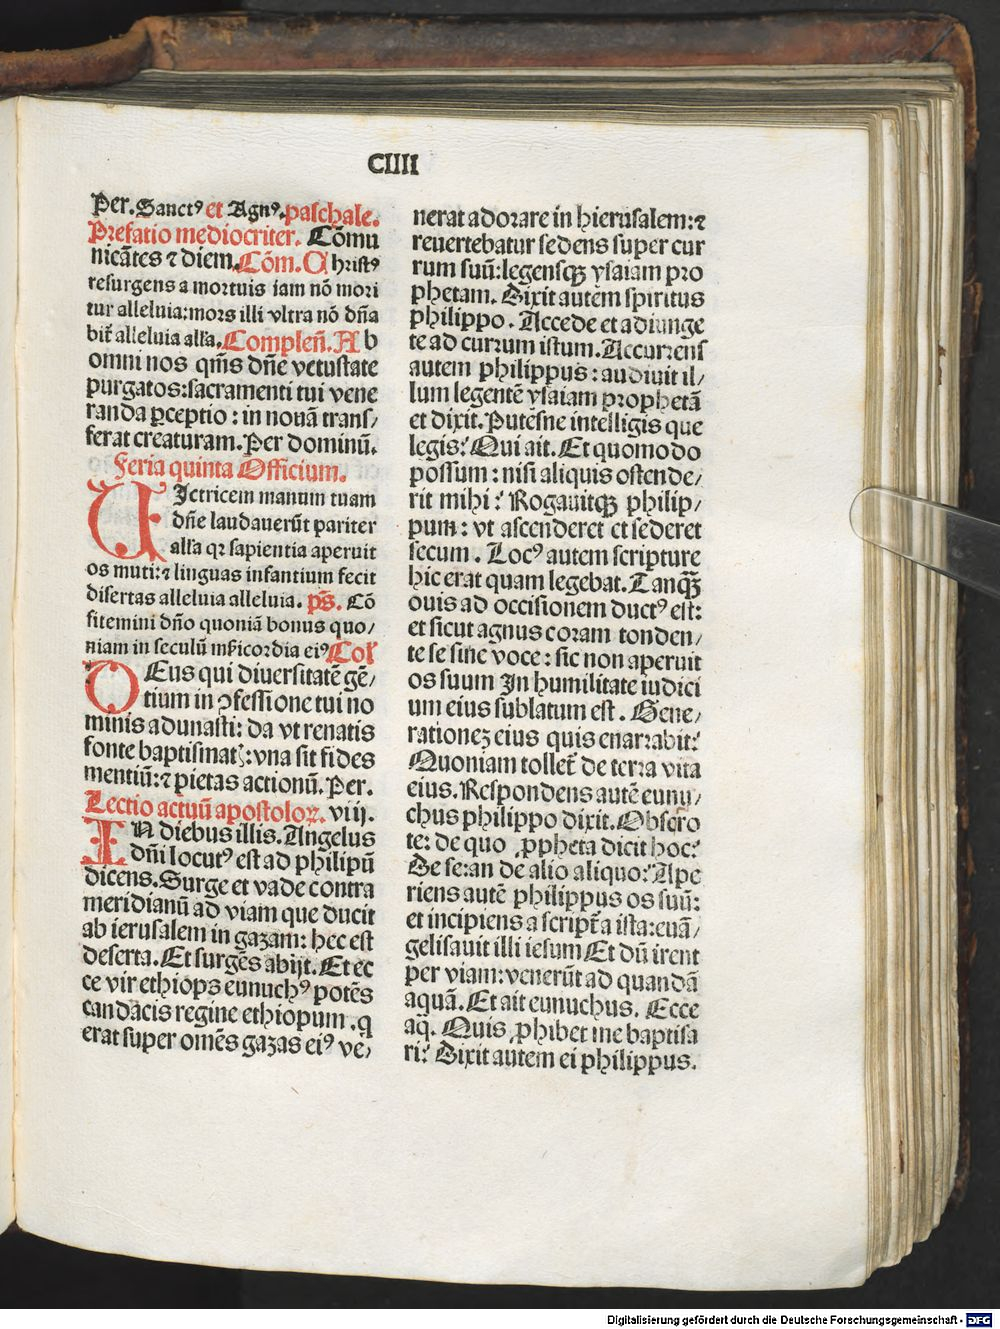 CIIII
Per. Sanctꝰ et Agnꝰ. paschale.
Prefatio mediocriter. Cōmu
nicātes ⁊ diem. Cōm. Christꝰ
resurgens a mortuis iam nō mori
tur alleluia: mors illi vltra nō dn̄a
bit̄ alleluia alľa. Compleñ. Ab
omni nos qm̄s dn̄e vetustate
purgatos: sacramenti tui vene
randa ꝑceptio: in nouā trans/
ferat creaturam. Per dominū.
Feria quinta Officium.
VIctricem manum tuam
dn̄e laudauerūt pariter
alľa qꝛ sapientia aperuit
os muti: ⁊ linguas infantium fecit
disertas alleluia alleluia. ps̄. Cō
fitemini dn̄o quoniā bonus quo/
niam in seculū mīcordia eiꝰ Col
DEus qui diuersitatē gē/
tium in ꝯfessione tui no
minis adunasti: da vt renatis
fonte baptismatꝭ: vna sit fides
mentiū: ⁊ pietas actionū. Per.
Lectio actuū apostoloꝝ. viij.
IN diebus illis. Angelus
dn̄i locutꝰ est ad philipū
dicens. Surge et vade contra
meridianū ad viam que ducit
ab ierusalem in gazam: hec est
deserta. Et surgēs abijt. Et ec
ce vir ethiops eunuchꝰ potēs
candacis regine ethiopum. q
erat super omēs gazas eiꝰ ve/
nerat adorare in hierusalem: ⁊
reuertebatur sedens super cur
rum suū: legensqꝫ ysaiam pro
phetam. Dixit autem spiritus
philippo. Accede et adiunge
te ad currum istum. Accurrens
autem philippus: audiuit il/
lum legentē ysaiam prophetā
et dixit. Putēsne intelligis que
legis? Qui ait. Et quomodo
possum: nisi aliquis ostende/
rit mihi? Rogauitqꝫ philip/
pum: vt ascenderet et sederet
secum. Locꝰ autem scripture
hic erat quam legebat. Tanqꝫ̄
ouis ad occisionem ductꝰ est:
et sicut agnus coram tonden/
te se sine voce: sic non aperuit
os suum In humilitate iudici
um eius sublatum est. Gene/
rationeꝫ eius quis enarrabit?
Quoniam tollet̄ de terra vita
eius. Respondens autē eunu/
chus philippo dixit. Obsecro
te: de quo ꝓpheta dicit hoc?
De se: an de alio aliquo? Ape
riens autē philippus os suū:
et incipiens a script̄a ista: euā/
gelisauit illi iesum Et dū irent
per viam: venerūt ad quandā
aquā. Et ait eunuchus. Ecce
aq̄. Quis ꝓhibet me baptisa
ri? Dixit autem ei philippus.
Digitalisierung gefördert durch die Deutsche Forschungsgemeinschaft - DFG